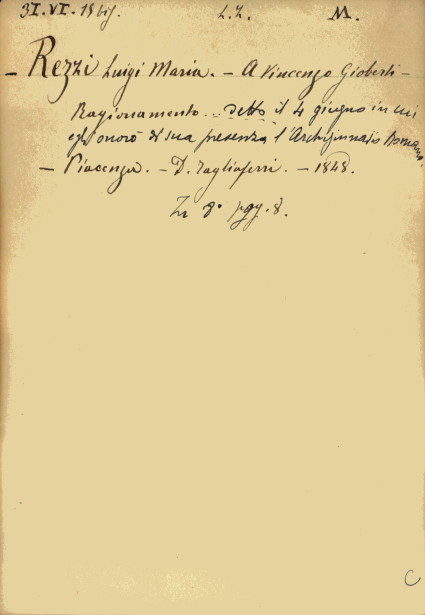 31.VI.18 L.L. M.
— Rezzi Luigi Maria. — A Vincenzo Gioberti —
Ragionamento... detto il 4 giugno in cui
egli onorò di sua presenza l'Archiginnasio Romano.
— Piacenza. — D. Tagliaferri. — 1848.
In 8° pgg. 8.
C